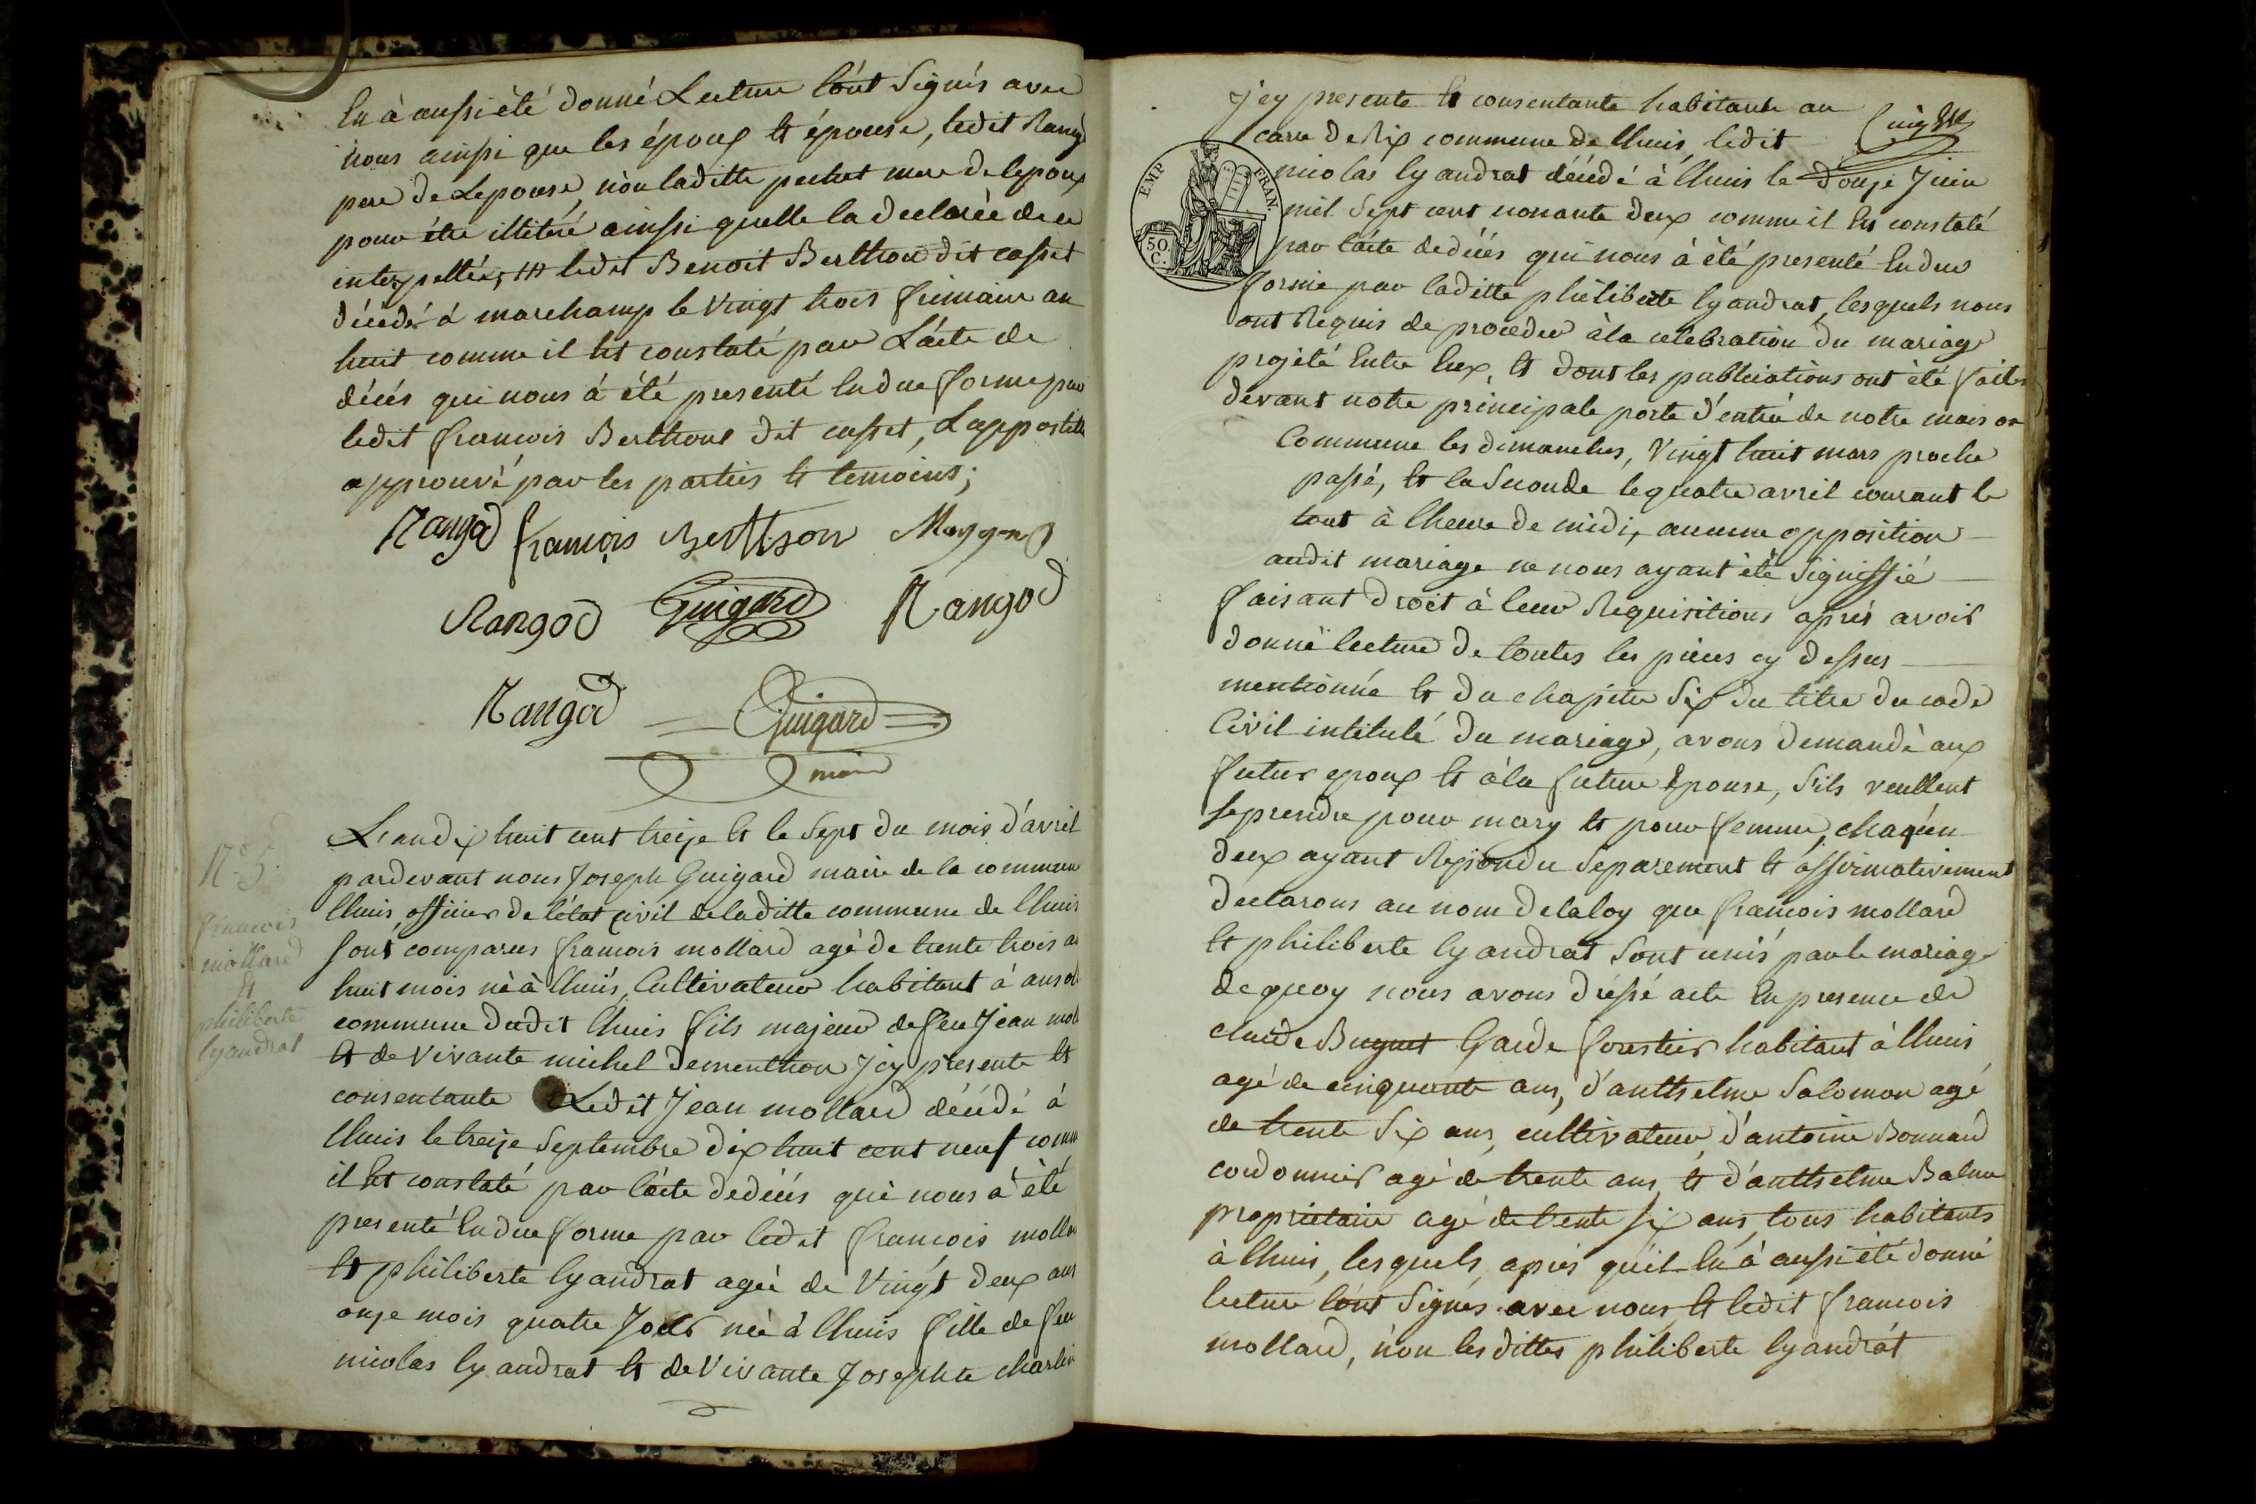 En à aussi été donné Lecture l'ont Signés avec
nous ainsi que les époux et épouse, ledit Rangod
pere de Lepouse, non laditte pechet mere de lepoux
pour étre illitéré ainsi quelle la declarée de ce
interpellée, ledit Benoit Berthon dit casset
décédé á marchamp le Vingt trois frimaire an
huit comme il Est constaté par L'acte de
décés qui nous á été presenté En due forme par
ledit francois Berthon dit casset, Lappostille
approuvé par les parties Et temoins;
Rangod francois Berthon
Rangod Guigard Rangod
Rangod Guigard
maire
N.° 5.
francois
mollard
Et
philiberte
lyandrat
L'an dix huit cent treize Et le Sept du mois d'avril
pardevant nous Joseph Guigard maire de la commune
Lhuis, officier de l'état civil de laditte commune de Lhuis
sont comparus francois mollard agé de trente trois an
huit mois né à Lhuis, Cultivateur habitant à
commune dudit Lhuis fils majeur de feu Jean moll
Et de Vivante michel Dementhon Jcy présente Et
consentante Ledit Jean mollard décédé à
Lhuis le treize Septembre dix huit cent neuf comm
il Est constaté par l'acte dedécés qui nous a été
presenté En due forme par ledit francois molla
Et philiberte lyandrat agée de Vingt deux ans
onze mois quatre Jour née à Lhuis fille de feu
nicolas lyandrat Et de Vivante Josephte charlin
Jcy presente Et consentante habitante au
commune de Lhuis, ledit
nicolas lyandrat décédé à Lhuis le douze Juin
mil Sept cent nonante deux comme il Est constaté
par l'acte dedécés qui nous à été presenté En due
forme par laditte philiberte lyandrat, lesquels nous
ont Requis de proceder à la celebration du mariage
projété Entre Eux, Et dont les publications ont été faites
devant notre principale porte d'entrée de notre maison
Commune les dimanches, Vingt huit mars proche
passé, Et la Seconde le quatre avril courant le
tout à lheure de midi, aucune opposition
audit mariage ne nous ayant été Signiffié
faisant droit à leur Requisitions aprés avoir
donné lecture de toutes les pieces cy dessus
mentionné Et du chapitre Six du titre du code
Civil intitulé du mariage, avons demandé aux
futur epoux Et à la future Epouse, S'ils veullent
se prendre pour mary Et pour femme, chaqu'en
deux ayant Repondu Separement Et affirmativement
declarons au nom de la loy que francois mollard
Et philiberte lyandrat Sont unis par le mariage
de quoy nous avons dréssé acte En presence de
claude Buynet Garde forestier habitant à Lhuis
agé de cinquante ans, d'anthelme Salomon agé
de trente Six ans, cultivateur, d'antoine Bonnard
cordonnier agé de trente ans Et d'anthelme Balme
proprietaire agé de trente six ans, tous habitants
à Lhuis, lesquels, aprés qu'il En à aussi été donné
lecture l'ont Signés avec nous Et ledit francois
mollard, non les dittes philiberte lyandrat
EMP FRAN.
50
C.